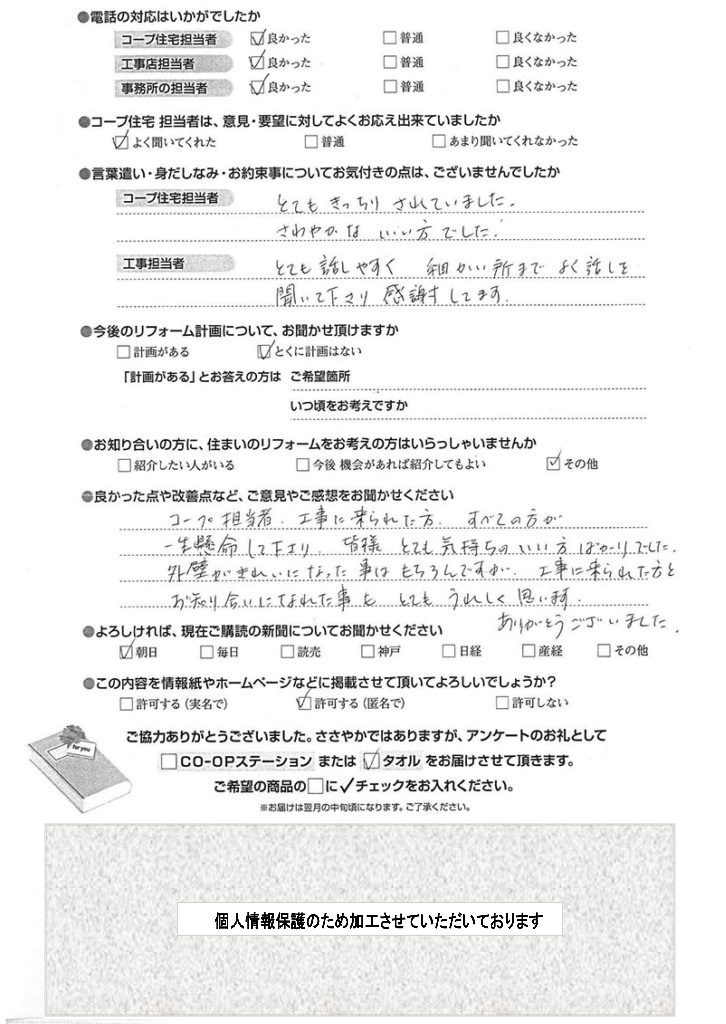 ●電話の対応はいかがでしたか
コープ住宅担当者 ☑良かった □普通 □良くなかった
工事店担当者 ☑良かった □普通 □良くなかった
事務所の担当者 ☑良かった □普通 □良くなかった
●コープ住宅 担当者は、意見・要望に対してよくお応え出来ていましたか
☑よく聞いてくれた □普通 □あまり聞いてくれなかった
●言葉遣い・身だしなみ・お約束事についてお気付きの点は、ございませんでしたか
コープ住宅担当者 とても きっちり されていました。
さわやかな いい方 でした!
工事担当者 とても 話しやすく 細かい所まで よく話しを
聞いて下さり 感謝してます。
●今後のリフォーム計画について、お聞かせ頂けますか
□計画がある ☑とくに計画はない
「計画がある」とお答えの方は ご希望箇所
いつ頃をお考えですか
●お知り合いの方に、住まいのリフォームをお考えの方はいらっしゃいませんか
□紹介したい人がいる □今後 機会があれば紹介してもよい ☑その他
●良かった点や改善点など、ご意見やご感想をお聞かせください
コープ担当者、工事に来られた方、すべての方が
一生懸命して下さり、皆様 とても気持ちのいい方ばかりでした。
外壁がきれいになった事はもちろんですが、工事に来られた方と
お知り合いになれた事も とても うれしく思います。
ありがとうございました。
●よろしければ、現在ご購読の新聞についてお聞かせください
☑朝日 □毎日 □読売 □神戸 □日経 □産経 □その他
●この内容を情報紙やホームページなどに掲載させて頂いてよろしいでしょうか?
□許可する(実名で) ☑許可する(匿名で) □許可しない
for you
ご協力ありがとうございました。ささやかではありますが、アンケートのお礼として
□CO-OPステーション または ☑タオル をお届けさせて頂きます。
ご希望の商品の□に✓チェックをお入れください。
※お届けは翌月の中旬頃になります。ご了承ください。
個人情報保護のため加工させていただいております